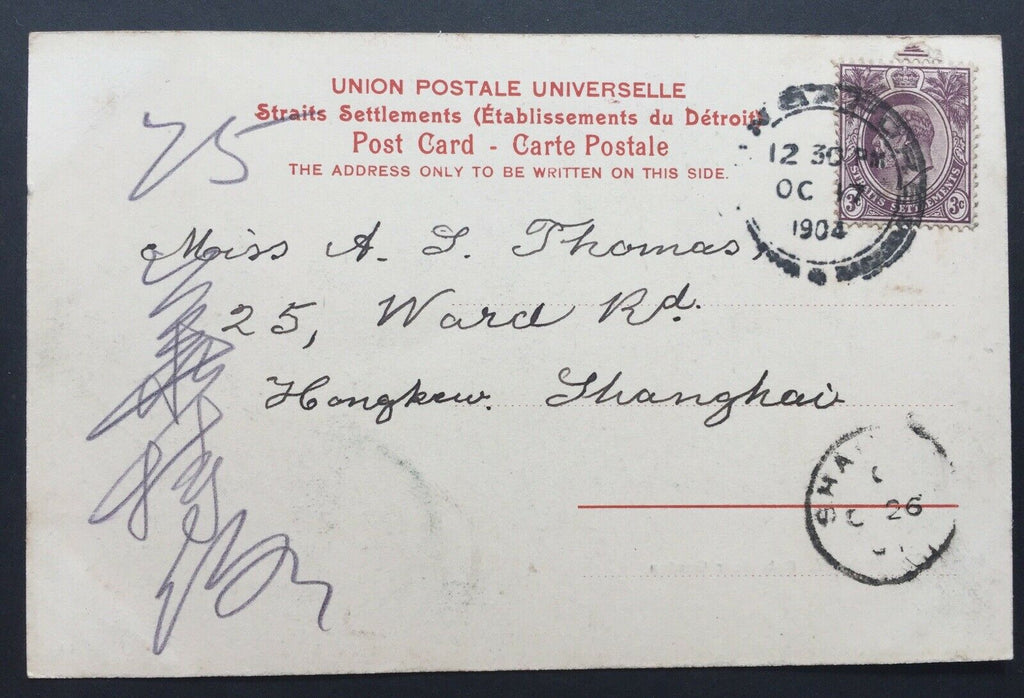 UNION POSTALE UNIVERSELLE
Straits Settlements (Établissements du Détroit)
Post Card - Carte Postale
THE ADDRESS ONLY TO BE WRITTEN ON THIS SIDE.
75
12 30 PM
OC 17
1904
STRAITS SETTLEMENTS
3c 3c
Miss A. S. Thomas,
25, Ward Rd.
Hongkew. Shanghai
SHA
C 26